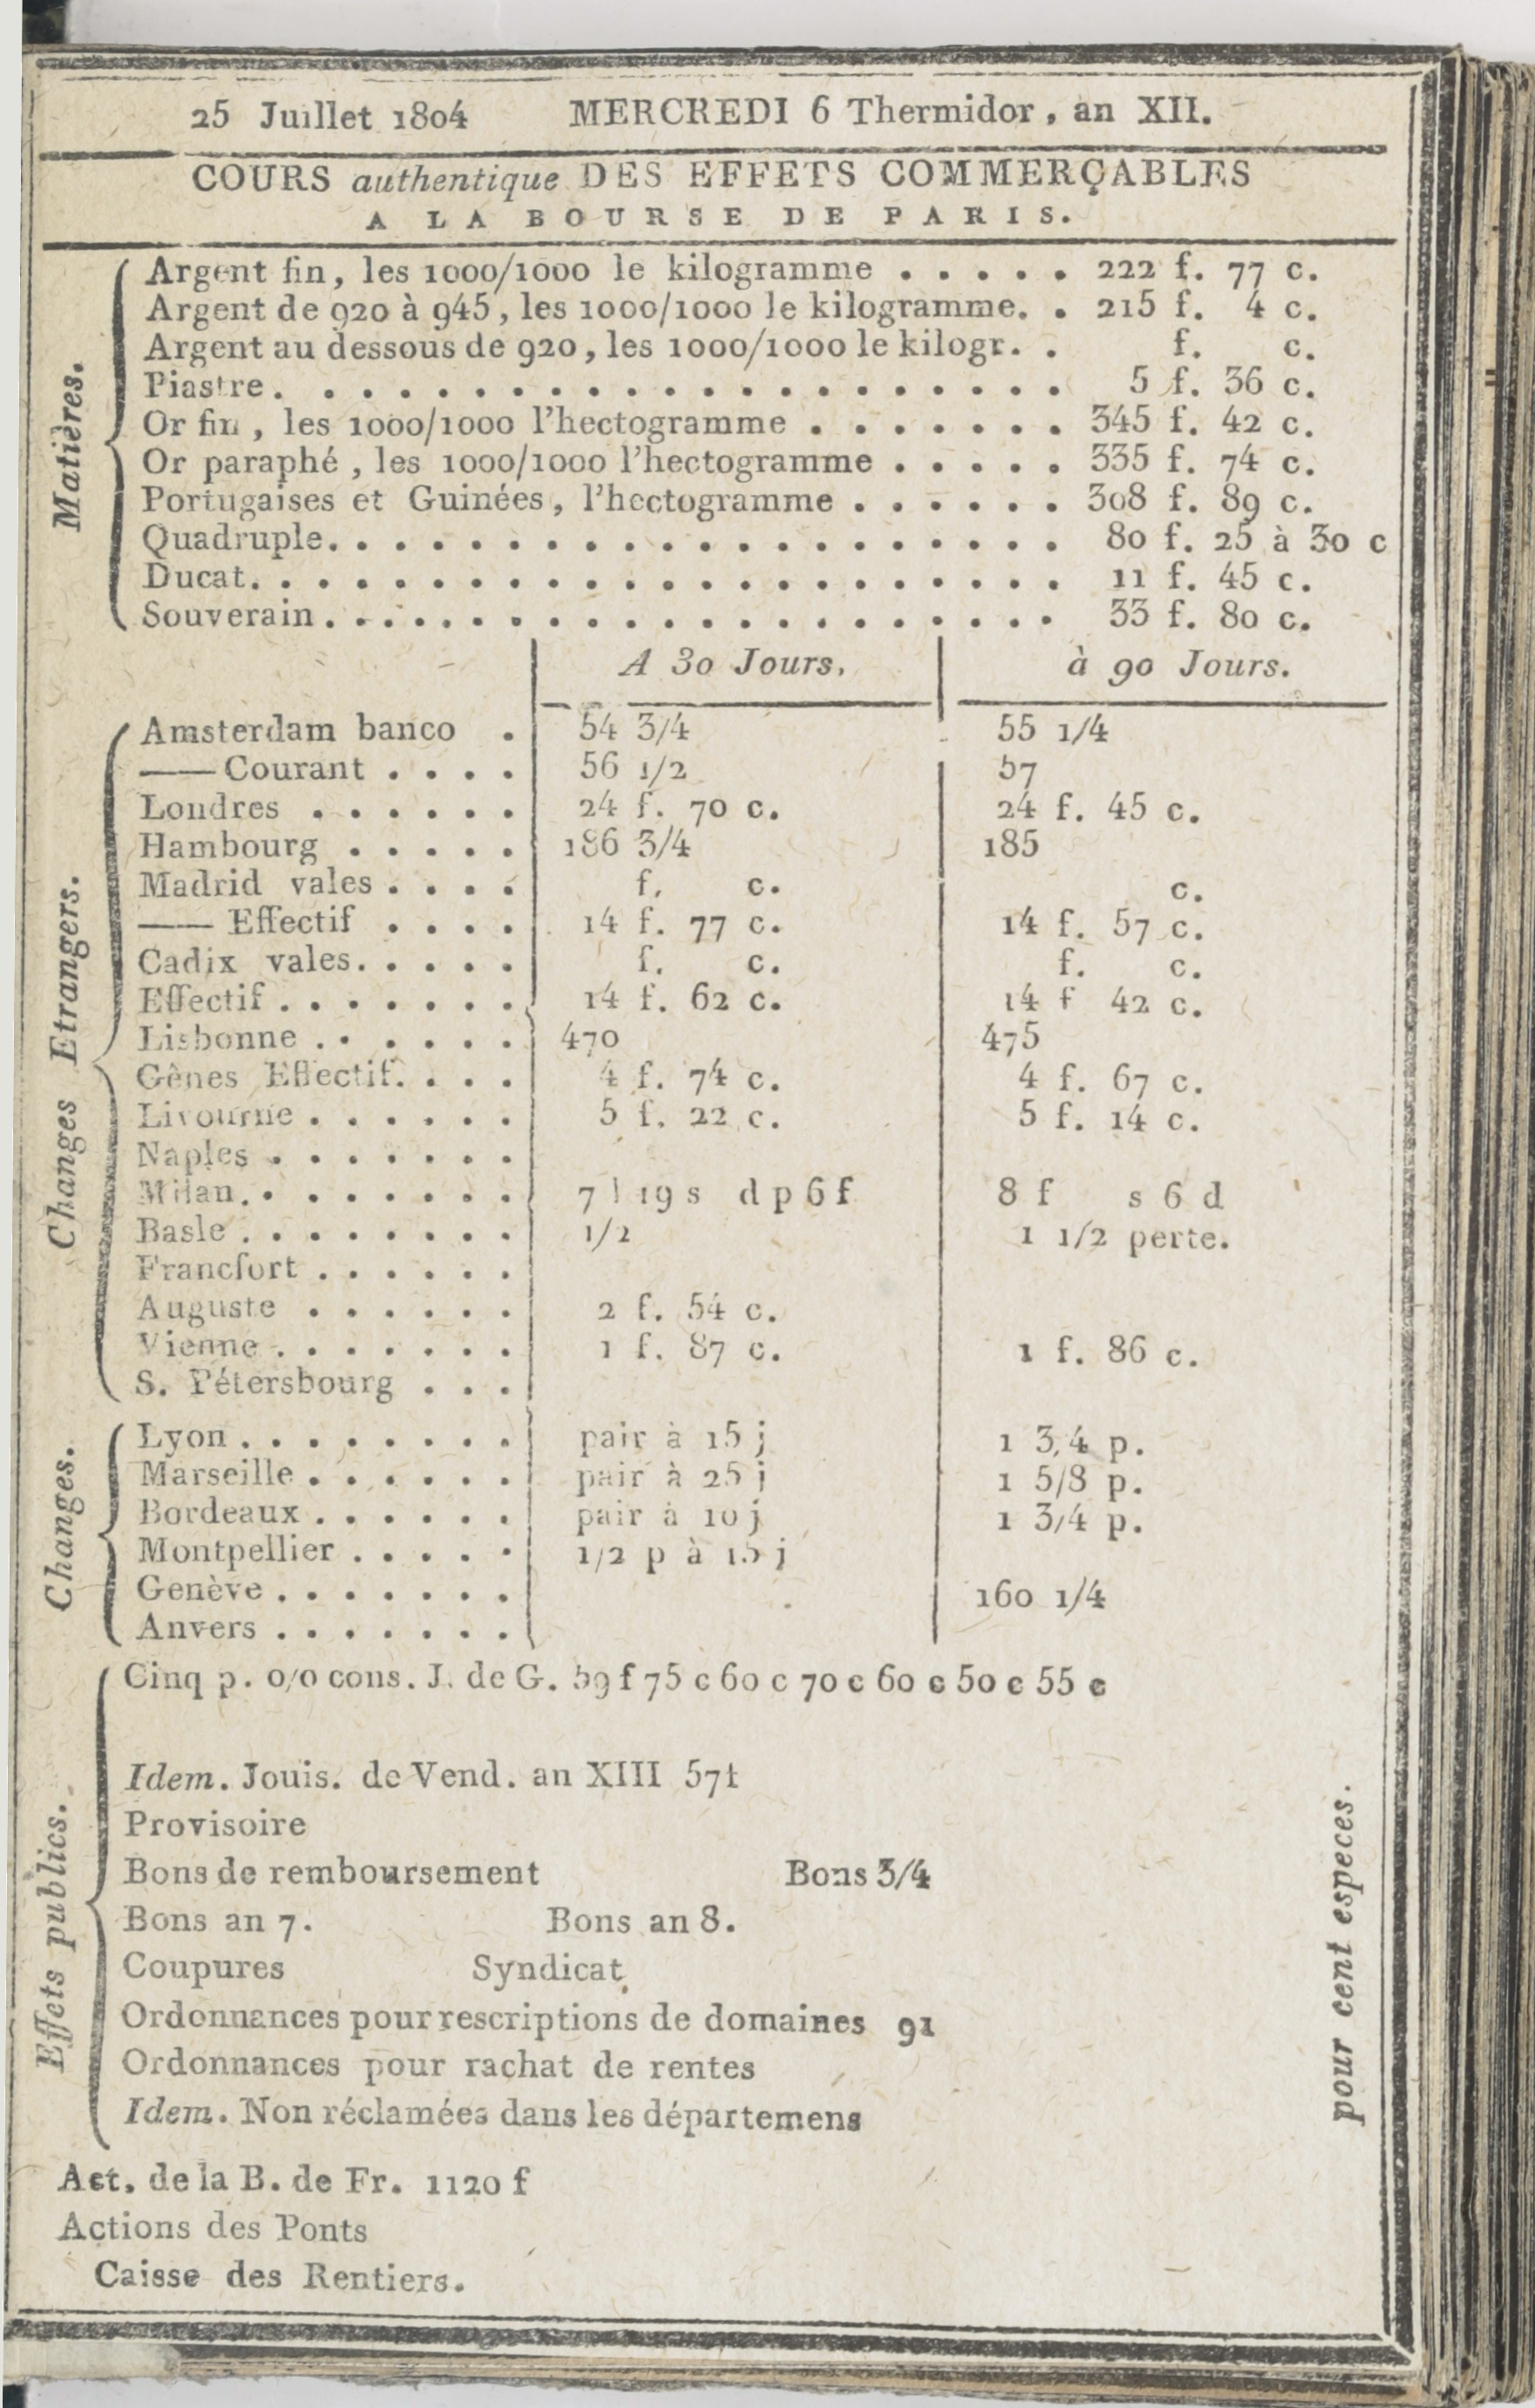 25 Juillet 1804 MERCREDI 6 Thermidor, an XII.
COURS authentique DES EFFETS COMMERÇABLES
A LA BOURSE DE PARIS.
Matières.
Argent fin, les 1000/1000 le kilogramme . . . . . 222 f. 77 c.
Argent de 920 à 945, les 1000/1000 le kilogramme. . 215 f. 4 c.
Argent au dessous de 920, les 1000/1000 le kilogr. . f. c.
Piastre. . . . . . . . . . . . . . . . . . . . . 5 f. 36 c.
Or fin, les 1000/1000 l'hectogramme . . . . . . . 345 f. 42 c.
Or paraphé, les 1000/1000 l'hectogramme . . . . . 335 f. 74 c.
Portugaises et Guinées, l'hectogramme . . . . . . 308 f. 89 c.
Quadruple. . . . . . . . . . . . . . . . . . . . 80 f. 25 à 30 c
Ducat. . . . . . . . . . . . . . . . . . . . . . 11 f. 45 c.
Souverain. . . . . . . . . . . . . . . . . . . . 33 f. 80 c.
A 30 Jours. à 90 Jours.
Changes Etrangers.
Amsterdam banco . 54 3/4 55 1/4
—— Courant . . . . 56 1/2 57
Londres . . . . . . 24 f. 70 c. 24 f. 45 c.
Hambourg . . . . . 186 3/4 185
Madrid vales . . . . f. c. c.
—— Effectif . . . . 14 f. 77 c. 14 f. 57 c.
Cadix vales. . . . . f. c. f. c.
Effectif . . . . . . . 14 f. 62 c. 14 f 42 c.
Lisbonne . . . . . . 470 475
Gênes Effectif. . . . 4 f. 74 c. 4 f. 67 c.
Livourne . . . . . . 5 f. 22 c. 5 f. 14 c.
Naples . . . . . . .
Milan. . . . . . . . 7 l 19 s d p 6 f 8 f s 6 d
Basle . . . . . . . . 1/2 1 1/2 perte.
Francfort . . . . . .
Auguste . . . . . . 2 f. 54 c.
Vienne . . . . . . . 1 f. 87 c. 1 f. 86 c.
S. Pétersbourg . . .
Changes.
Lyon . . . . . . . . . pair à 15 j 1 3/4 p.
Marseille . . . . . . pair à 25 j 1 5/8 p.
Bordeaux . . . . . . pair à 10 j 1 3/4 p.
Montpellier . . . . . 1/2 p à 15 j
Genève . . . . . . . 160 1/4
Anvers . . . . . . .
Effets publics.
Cinq p. 0/0 cons. J. de G. 59 f 75 c 60 c 70 c 60 c 50 c 55 c
Idem. Jouis. de Vend. an XIII 57f
Provisoire
Bons de remboursement Bons 3/4
Bons an 7. Bons an 8.
Coupures Syndicat
Ordonnances pour rescriptions de domaines 91
Ordonnances pour rachat de rentes
Idem. Non réclamées dans les départemens
pour cent especes.
Act. de la B. de Fr. 1120 f
Actions des Ponts
Caisse des Rentiers.